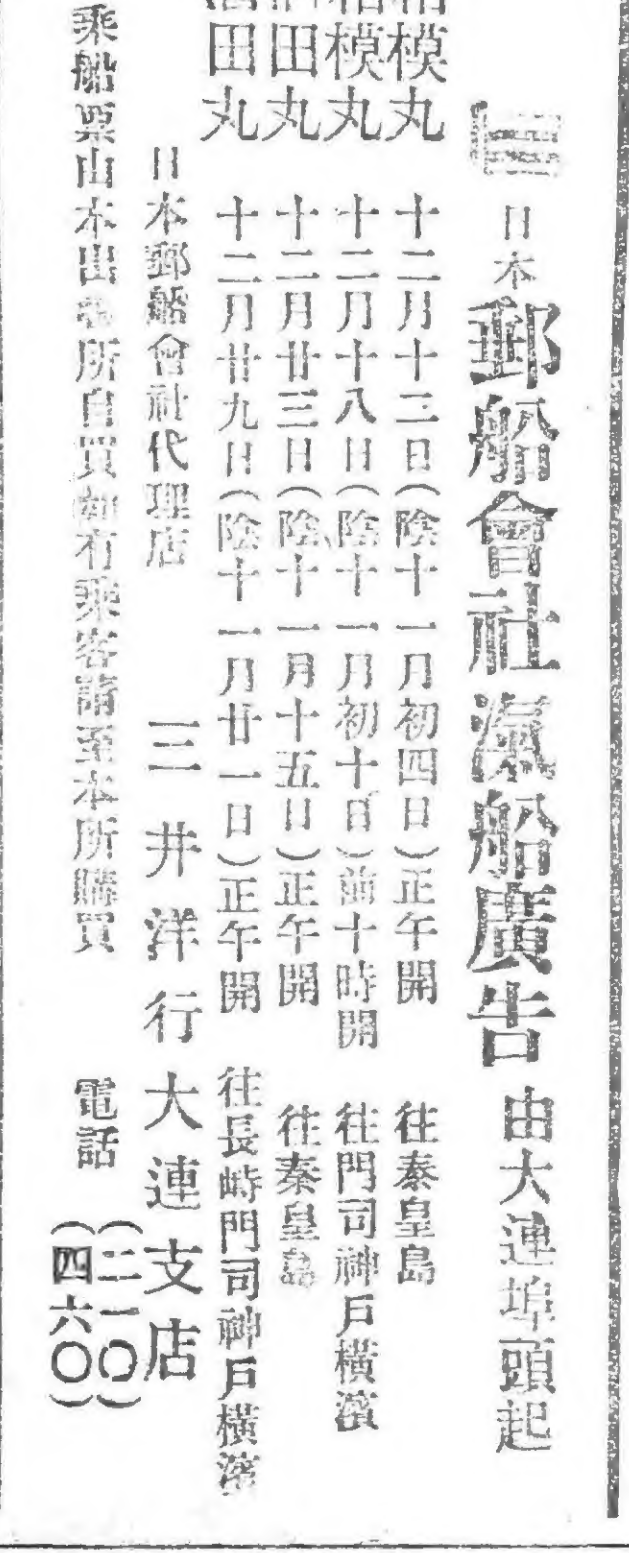 日本郵船會社滊船廣告 由大連埠頭起
相模丸 十二月十二日(陰十一月初四日)正午開 往秦皇島
相模丸 十二月十八日(陰十一月初十日)前十時開 往門司神戶橫濱
田丸 十二月廿三日(陰十一月十五日)正午開 往秦皇島
田丸 十二月廿九日(陰十一月廿一日)正午開 往長崎門司神戶橫濱
日本郵船會社代理店 三井洋行大連支店
乘船票由本出張所自買如有乘客請至本所購買 電話 (二一〇)(四六〇)